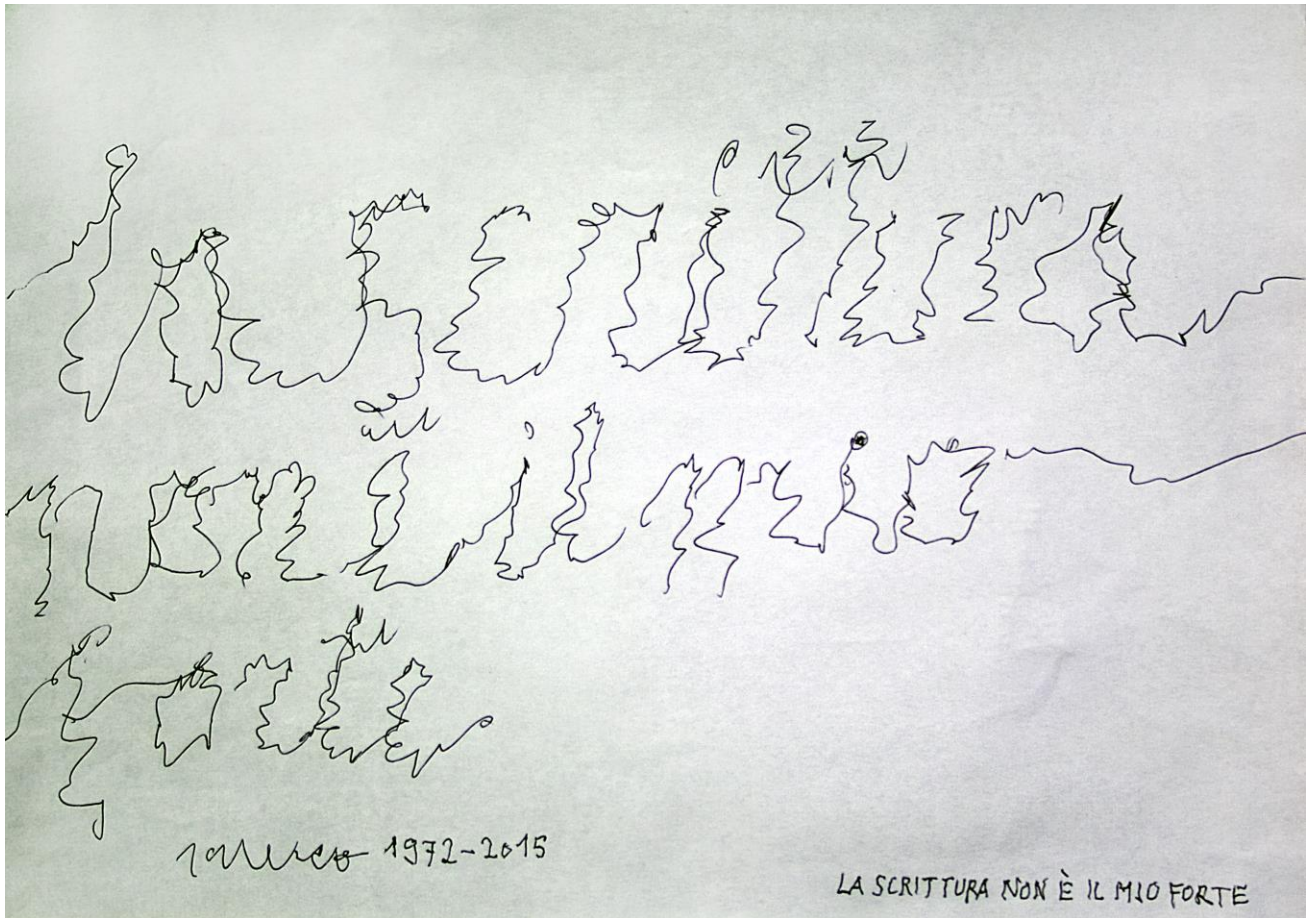 la scrittura
non è il mio
forte
1972-2015
LA SCRITTURA NON È IL MIO FORTE